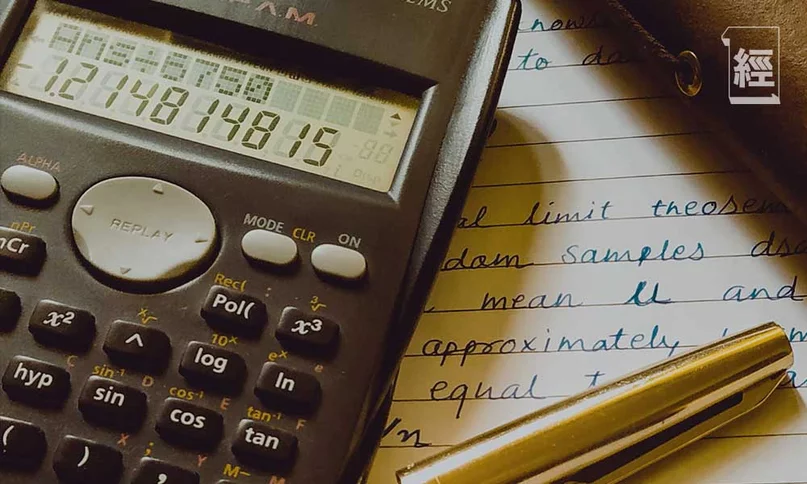 EMS
經
Ans÷6750
-1.214814815
ALPHA
REPLAY
MODE CLR ON
nPr
nCr
Rec( :
Pol(
³√
x³
ˣ√
x² ^
10ˣ
log
eˣ e
ln
C
hyp
sin⁻¹ D
sin
cos⁻¹ E
cos
tan⁻¹ F
tan
(
X
)
;
,
Y
M-
to da
al limit theorem
dom samples
mean μ and
approximately
equal
/n